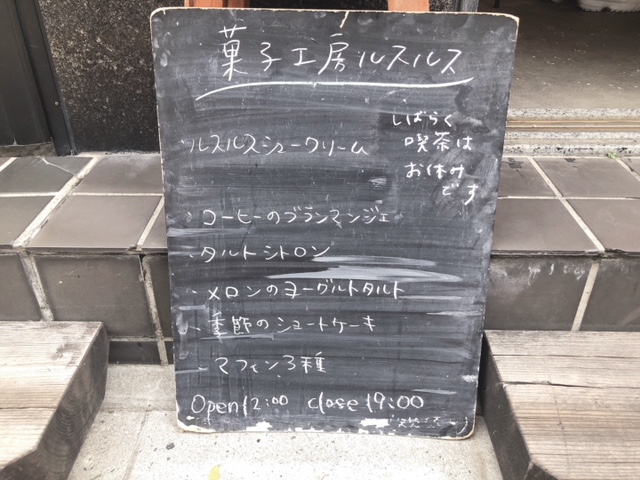 菓子工房ルスルス
しばらく
喫茶は
お休み
です
ルスルスシュークリーム
・コーヒーのブランマンジェ
・タルトシトロン
・メロンのヨーグルトタルト
・季節のショートケーキ
・マフィン3種
Open 12:00 close 19:00